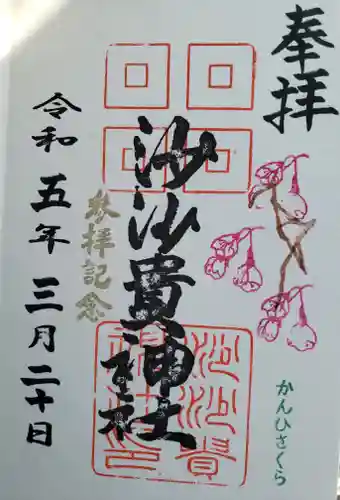 奉拝
かんひさくら
沙沙貴神社
沙沙貴
神社
参拝記念
令和五年三月二十日